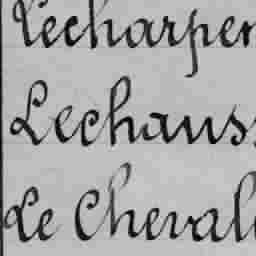 Lecharpen
Lechauss
Le Cheval